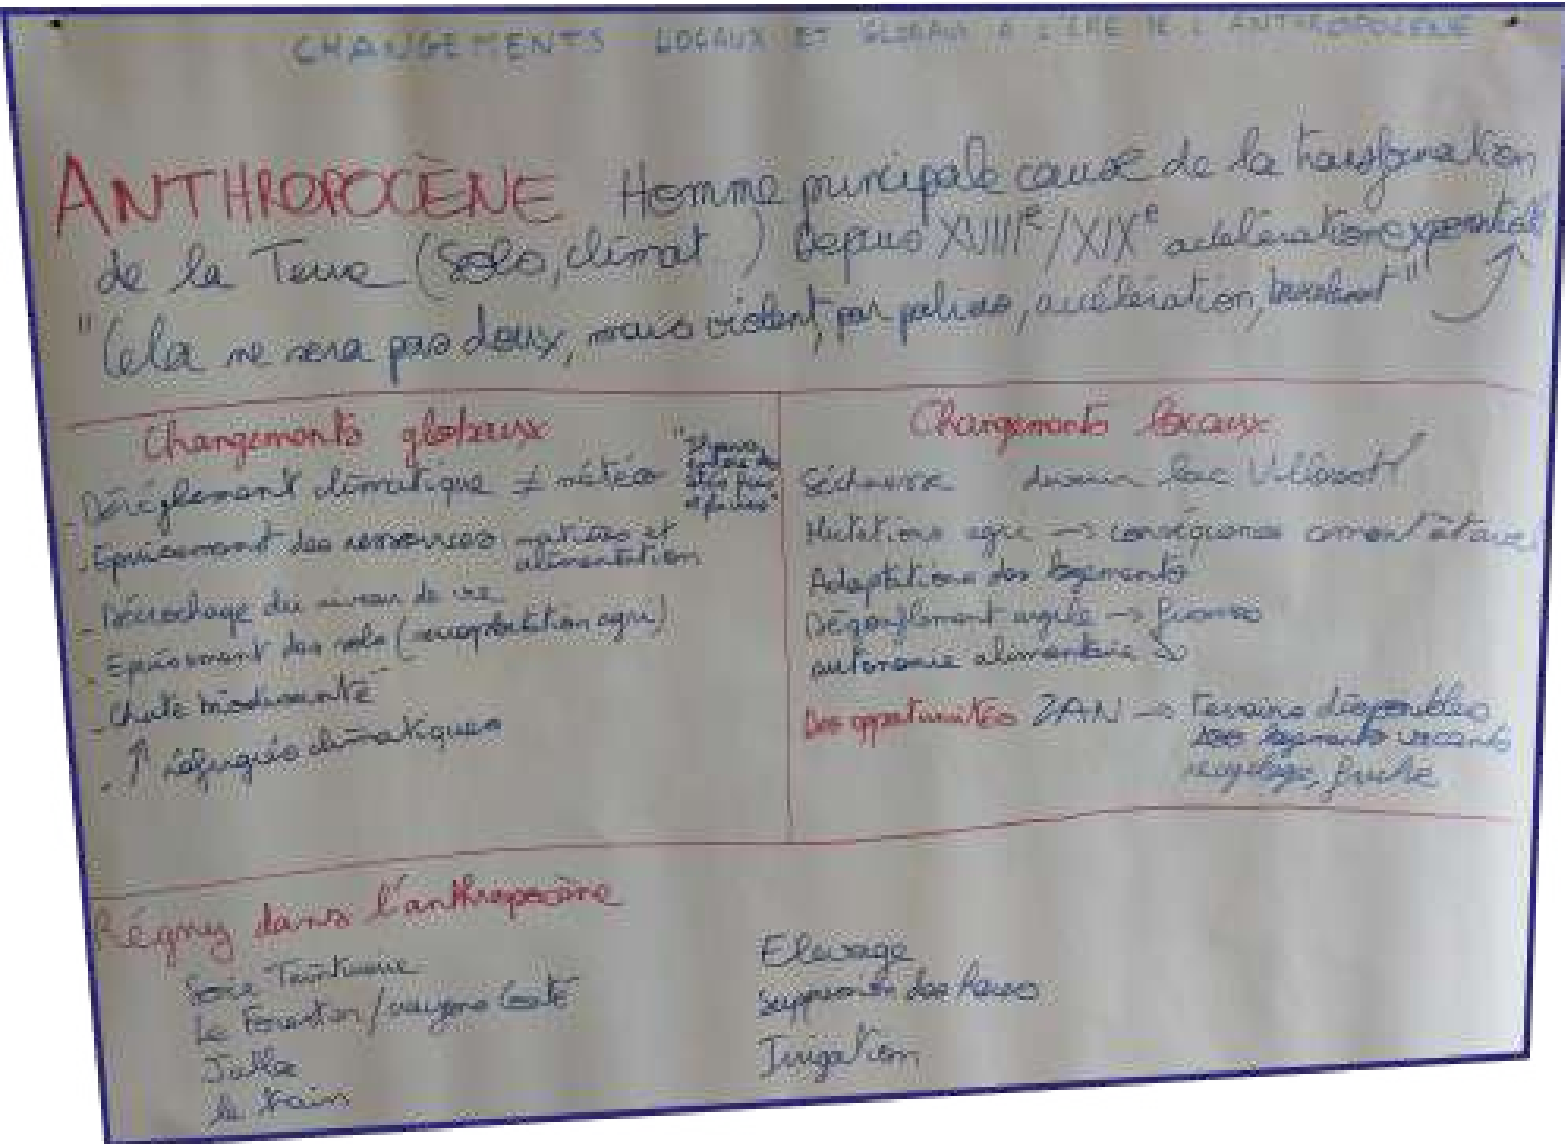 CHANGEMENTS LOCAUX ET GLOBAUX A L'ERE DE L'ANTHROPOCENE
ANTHROPOCÈNE Homme principale cause de la transformation
de la Terre (Sols, climat ) Depuis XVIIIe/XIXe accélération exponentielle
"Cela ne sera pas doux, mais violent, par paliers, accélération, "
Changements globaux
- Dérèglement climatique ≠ météo
- Epuisement des ressources matières et
alimentation
- Décrochage du niveau de vie
- Epuisement des sols (surexploitation agri)
- Chute biodiversité
- ↑ réfugiés climatiques
Changements locaux
Sécheresse devenir lac
Mutations agri → conséquences
Adaptations des logements
Dégonflement argile → fissures
autonomie alimentaire
Des opportunités ZAN → Terrains disponibles
logements vacants
recyclage, friche
Régny dans l'anthropocène
Teinturerie
Le Forestier/
Jalla
le train
Elevage
Suppression des haies
Irrigation